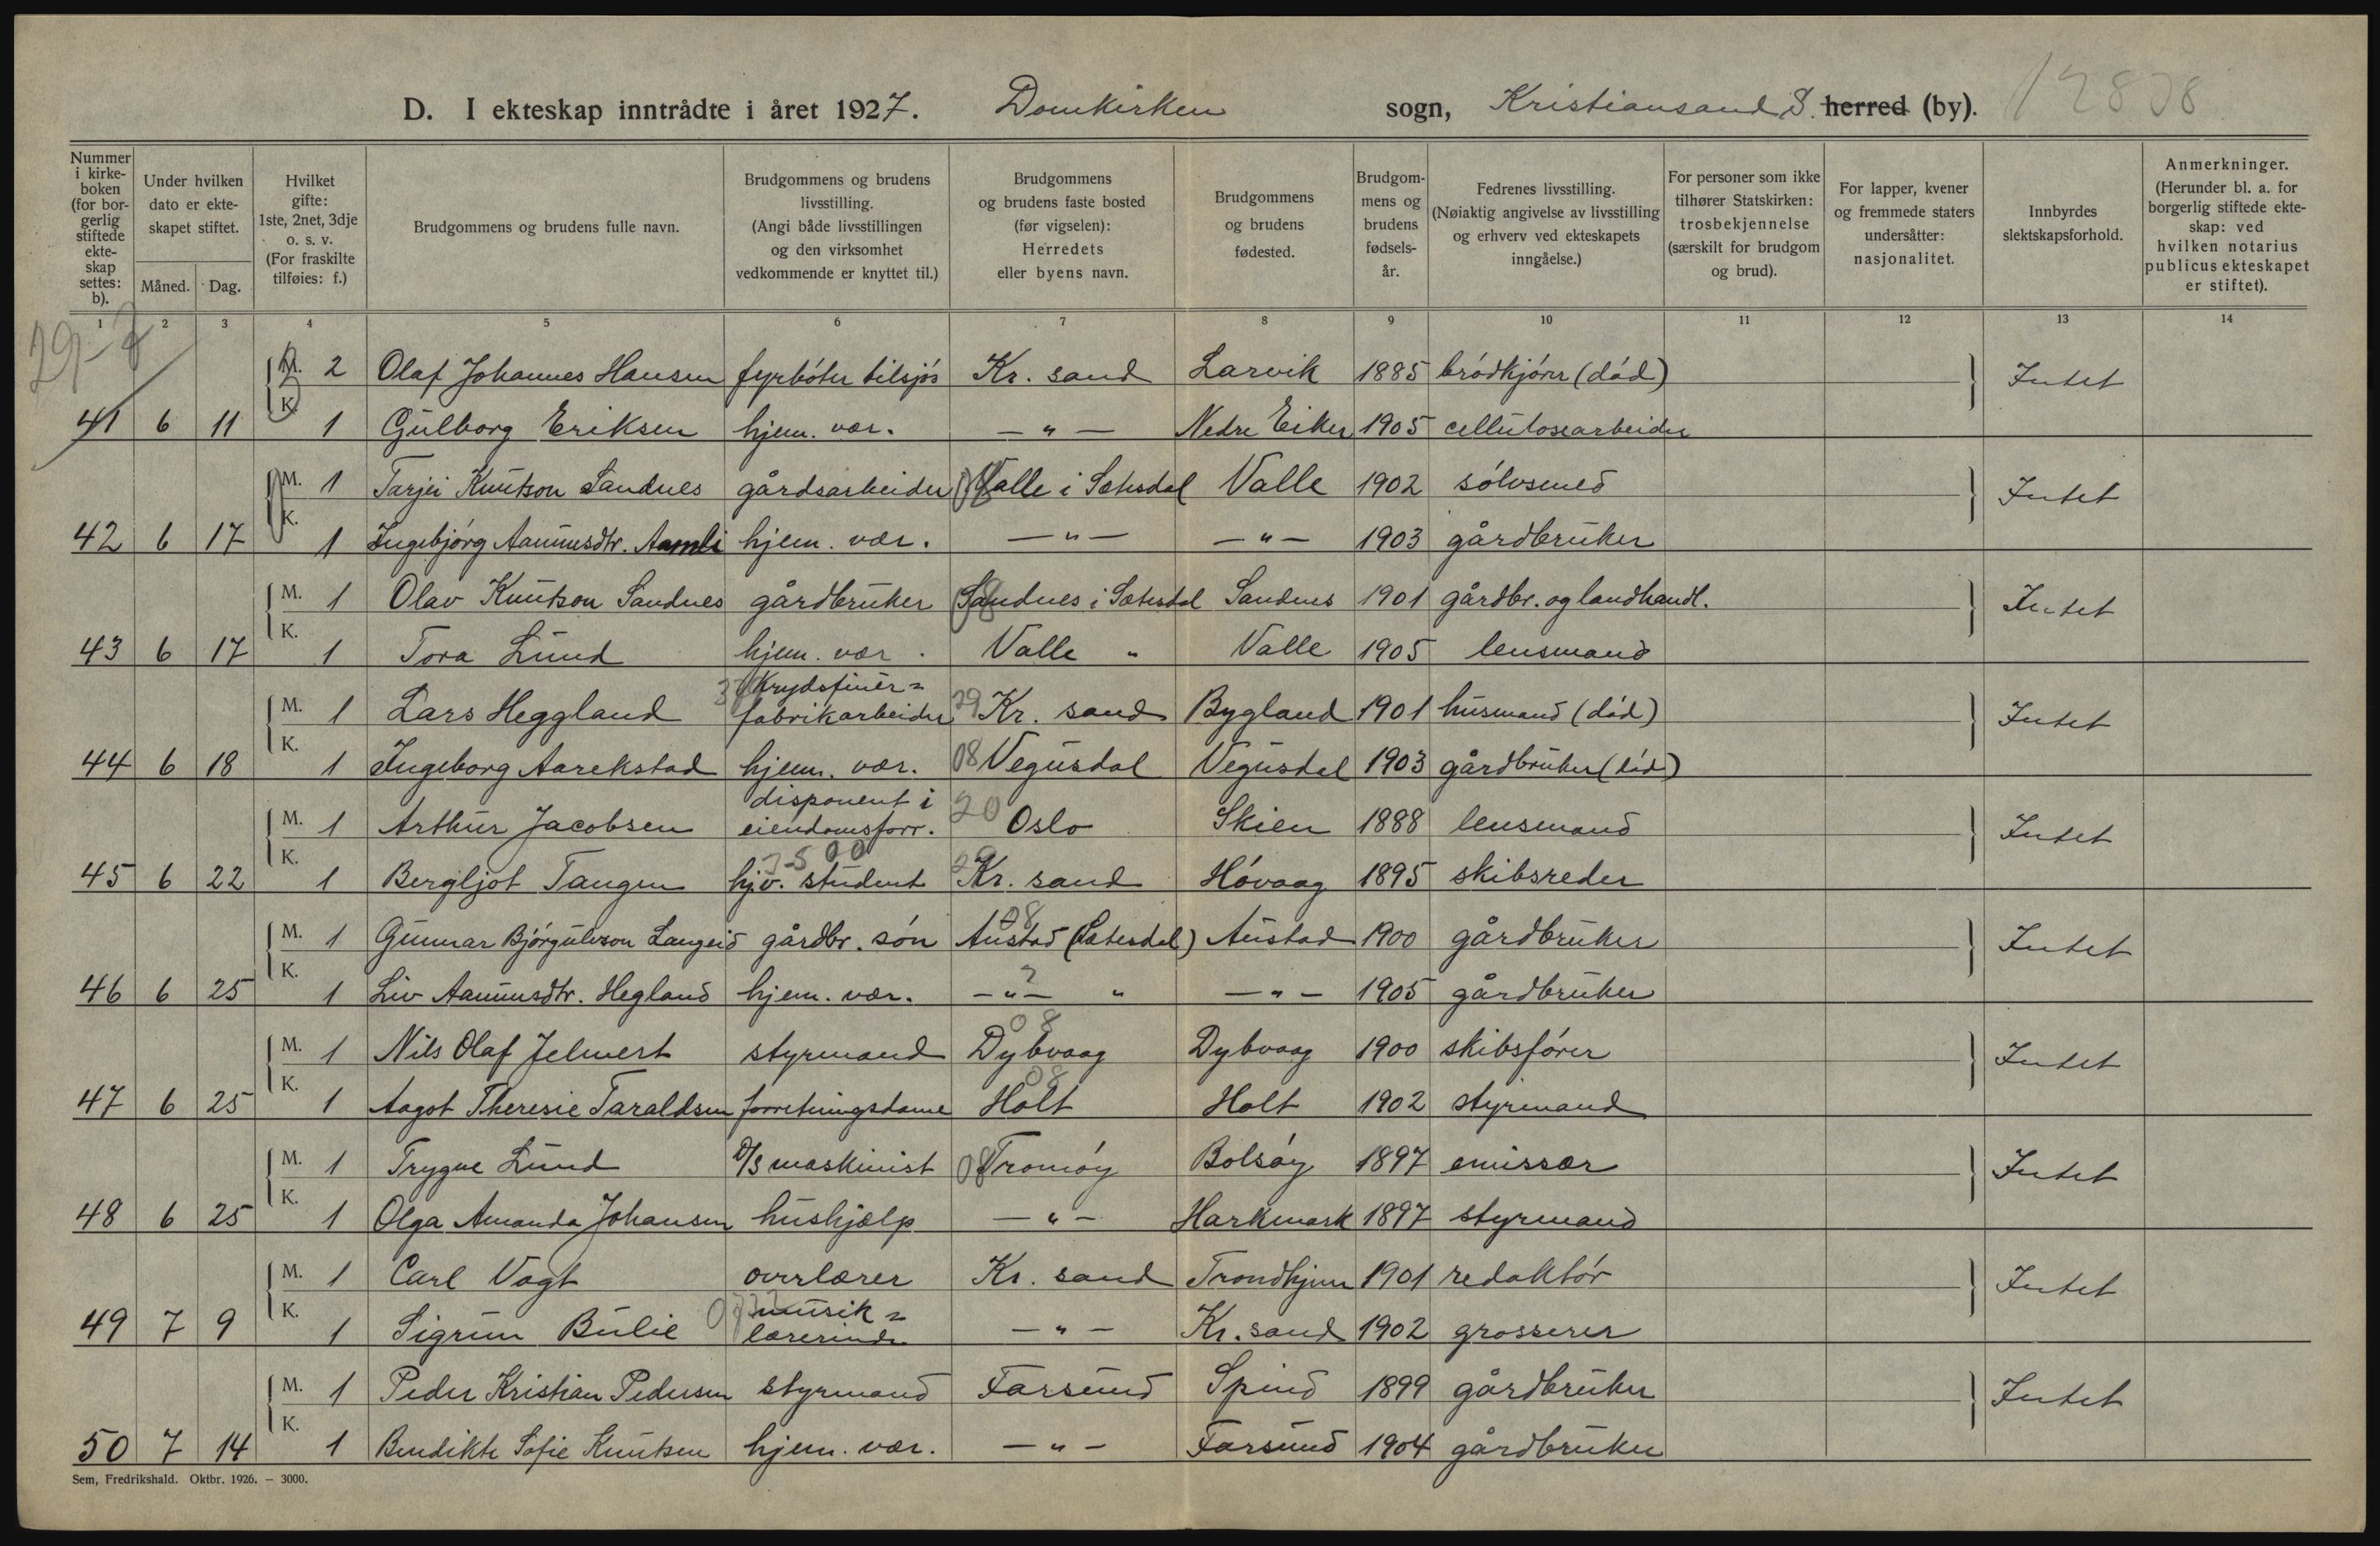 D. I ekteskap inntrådte i året 1927. Domkirken sogn, Kristiansand S. herred (by). 12808
Nummer i kirkeboken (for borgerlig stiftede ekteskap settes: b). Under hvilken dato er ekteskapet stiftet. Måned. Dag. Hvilket gifte: 1ste, 2net, 3dje o. s. v. (For fraskilte tilføies: f.) Brudgommens og brudens fulle navn. Brudgommens og brudens livsstilling. (Angi både livsstillingen og den virksomhet vedkommende er knyttet til.) Brudgommens og brudens faste bosted (før vigselen): Herredets eller byens navn. Brudgommens og brudens fødested. Brudgommens og brudens fødselsår. Fedrenes livsstilling. (Nøiaktig angivelse av livsstilling og erhverv ved ekteskapets inngåelse.) For personer som ikke tilhører Statskirken: trosbekjennelse (særskilt for brudgom og brud). For lapper, kvener og fremmede staters undersåtter: nasjonalitet. Innbyrdes slektskapsforhold. Anmerkninger. (Herunder bl. a. for borgerlig stiftede ekteskap: ved hvilken notarius publicus ekteskapet er stiftet).
1 2 3 4 5 6 7 8 9 10 11 12 13 14
M. 2 Olaf Johannes Hansen fyrbøter tilsjøs Kr. sand Larvik 1885 brødkjører (død) Intet
41 6 11 K. 1 Gulborg Eriksen hjem. vær. — " — Nedre Eiker 1905 cellulosearbeider
M. 1 Tarjei Knutson Sandnes gårdsarbeider Valle i Sætesdal Valle 1902 sølvsmed Intet
42 6 17 K. 1 Ingebjørg Aanundsdtr. Aamli hjem. vær. — " — — " — 1903 gårdbruker
M. 1 Olav Knutson Sandnes gårdbruker Sandnes i Sætesdal Sandnes 1901 gårdbr. og landhandl. Intet
43 6 17 K. 1 Tora Lund hjem. vær. Valle " Valle 1905 lensmand
M. 1 Lars Heggland Krydsfinér= fabrikarbeider 29 Kr. sand Bygland 1901 husmand (død) Intet
44 6 18 K. 1 Ingeborg Aarekstad hjem. vær. 08 Vegusdal Vegusdal 1903 gårdbruker (død)
M. 1 Arthur Jacobsen disponent i eiendomsforr. 20 Oslo Skien 1888 lensmand Intet
45 6 22 K. 1 Bergljot Tangen hjv. student Kr. sand Høvaag 1895 skibsreder
M. 1 Gunnar Bjørgulvson Langeid gårdbr. søn 08 Austad (Sætesdal) Austad 1900 gårdbruker Intet
46 6 25 K. 1 Liv Aanundsdtr. Hegland hjem. vær. — " — " — " — 1905 gårdbruker
M. 1 Nils Olaf Jelmert styrmand 08 Dybvaag Dybvaag 1900 skibsfører Intet
47 6 25 K. 1 Aagot Theresie Taraldsen forretningsdame 08 Holt Holt 1902 styrmand
M. 1 Trygve Lund D/S maskinist 08 Tromøy Bolsøy 1897 emissær Intet
48 6 25 K. 1 Olga Amanda Johansen hushjælp — " — Harkmark 1897 styrmand
M. 1 Carl Vogt overlærer Kr. sand Trondhjem 1901 redaktør Intet
49 7 9 K. 1 Sigrun Bulie musik= lærerinde — " — Kr. sand 1902 grosserer
M. 1 Peder Kristian Pedersen styrmand Farsund Spind 1899 gårdbruker Intet
50 7 14 K. 1 Bendikte Sofie Knutsen hjem. vær. — " — Farsund 1904 gårdbruker
Sem, Fredrikshald. Oktbr. 1926. — 3000.